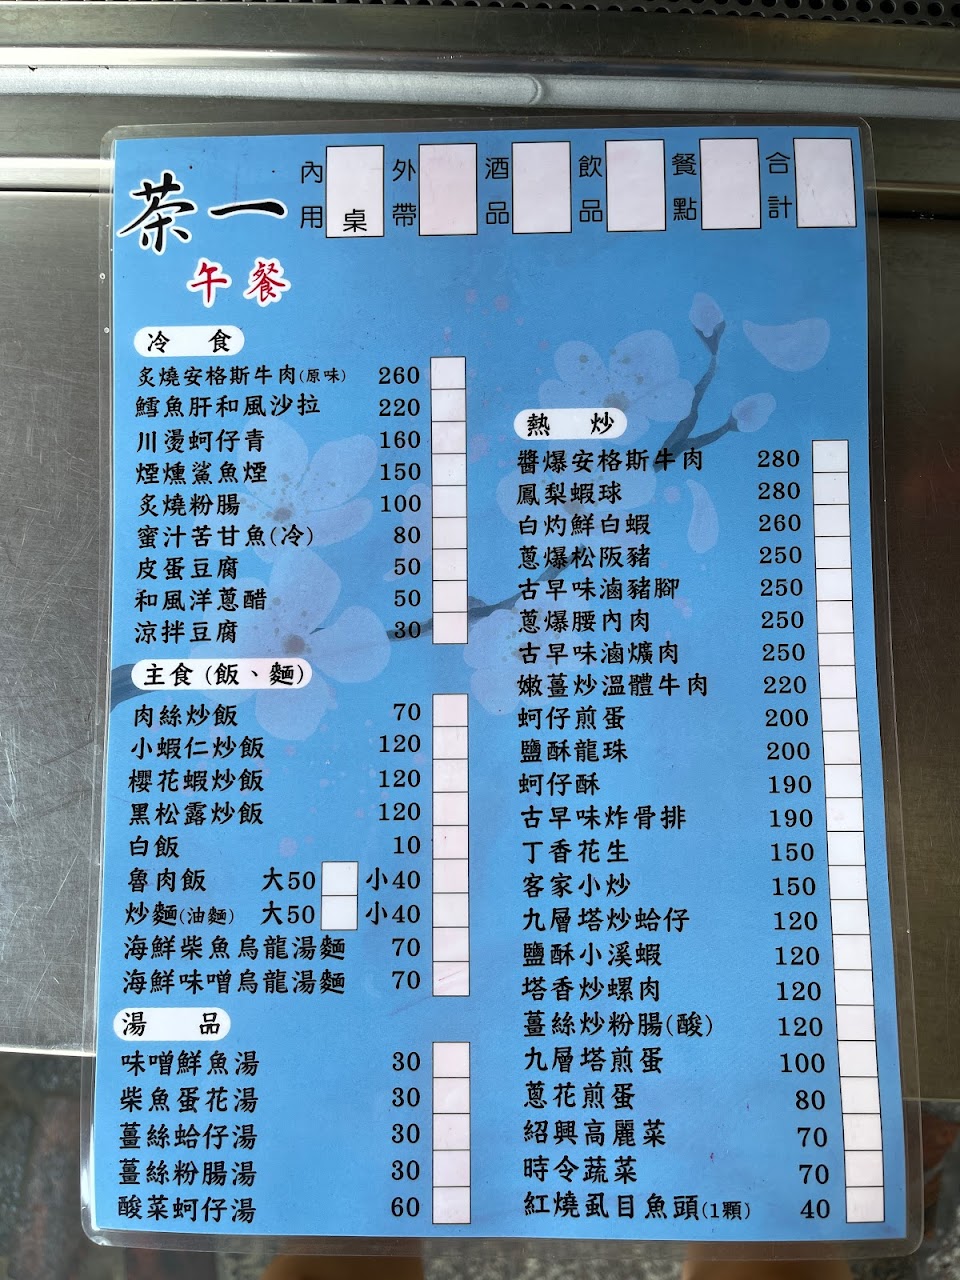 茶一
午餐
內用 桌 外帶 酒品 飲品 餐點 合計
冷食
炙燒安格斯牛肉(原味) 260
鱈魚肝和風沙拉 220
川燙蚵仔青 160
煙燻鯊魚煙 150
炙燒粉腸 100
蜜汁苦甘魚(冷) 80
皮蛋豆腐 50
和風洋蔥醋 50
涼拌豆腐 30
主食(飯、麵)
肉絲炒飯 70
小蝦仁炒飯 120
櫻花蝦炒飯 120
黑松露炒飯 120
白飯 10
魯肉飯 大50 小40
炒麵(油麵) 大50 小40
海鮮柴魚烏龍湯麵 70
海鮮味噌烏龍湯麵 70
湯品
味噌鮮魚湯 30
柴魚蛋花湯 30
薑絲蛤仔湯 30
薑絲粉腸湯 30
酸菜蚵仔湯 60
熱炒
醬爆安格斯牛肉 280
鳳梨蝦球 280
白灼鮮白蝦 260
蔥爆松阪豬 250
古早味滷豬腳 250
蔥爆腰內肉 250
古早味滷爌肉 250
嫩薑炒溫體牛肉 220
蚵仔煎蛋 200
鹽酥龍珠 200
蚵仔酥 190
古早味炸骨排 190
丁香花生 150
客家小炒 150
九層塔炒蛤仔 120
鹽酥小溪蝦 120
塔香炒螺肉 120
薑絲炒粉腸(酸) 120
九層塔煎蛋 100
蔥花煎蛋 80
紹興高麗菜 70
時令蔬菜 70
紅燒虱目魚頭(1顆) 40